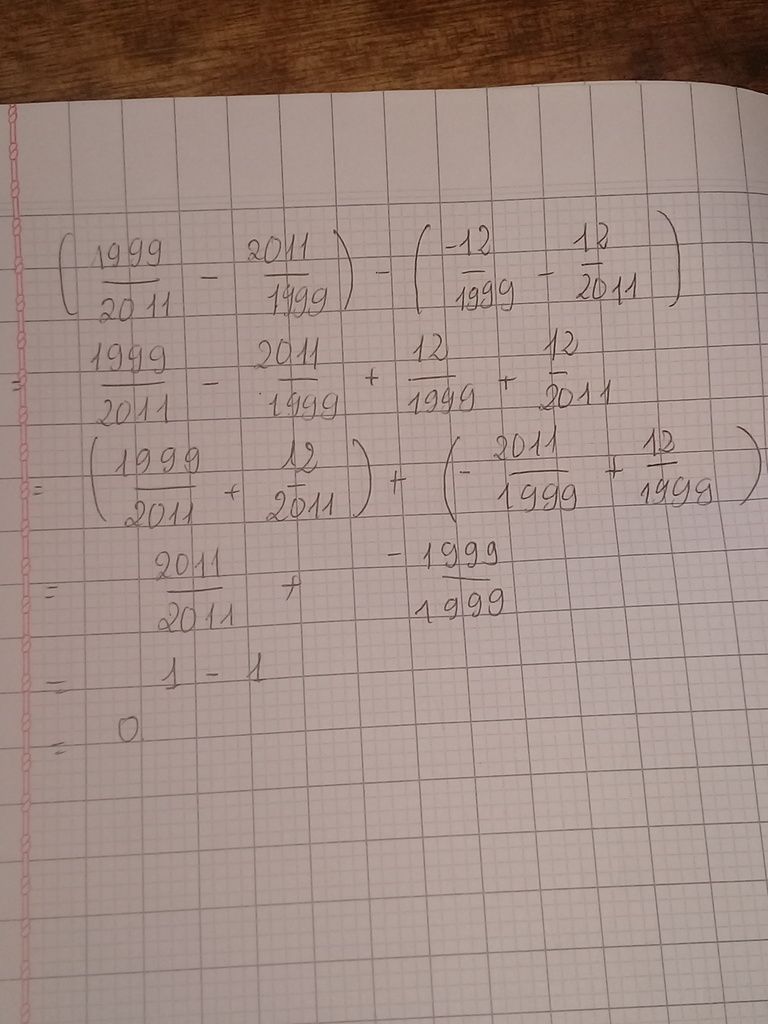 (1999/2011 - 2011/1999) - (-12/1999 - 12/2011)
= 1999/2011 - 2011/1999 + 12/1999 + 12/2011
= (1999/2011 + 12/2011) + (- 2011/1999 + 12/1999)
= 2011/2011 + -1999/1999
= 1 - 1
= 0